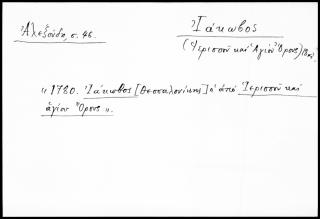 Ἀλεξούδη, σ. 46.
Ἰάκωβος
(Ἱερισσοῦ καὶ Ἁγίου Ὄρους)
« 1780. Ἰάκωβος [Θεσσαλονίκης] ὁ ἀπὸ Ἱερισσοῦ καὶ
ἁγίου Ὄρους ».